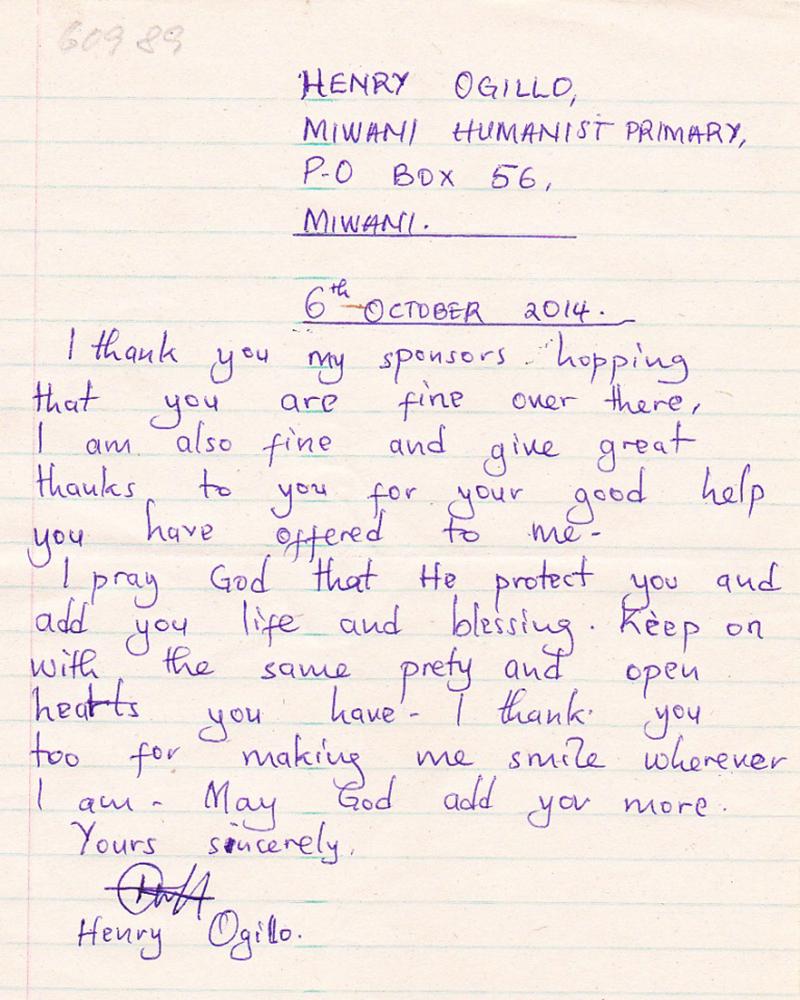 609 89
HENRY OGILLO,
MIWANI HUMANIST PRIMARY,
P-O BOX 56,
MIWANI.
6th OCTOBER 2014.
I thank you my sponsors hopping
that you are fine over there,
I am also fine and give great
thanks to you for your good help
you have offered to me-
I pray God that He protect you and
add you life and blessing. Keep on
with the same prety and open
hearts you have- I thank you
too for making me smile wherever
I am- May God add you more.
Yours sincerely,
Henry Ogillo.